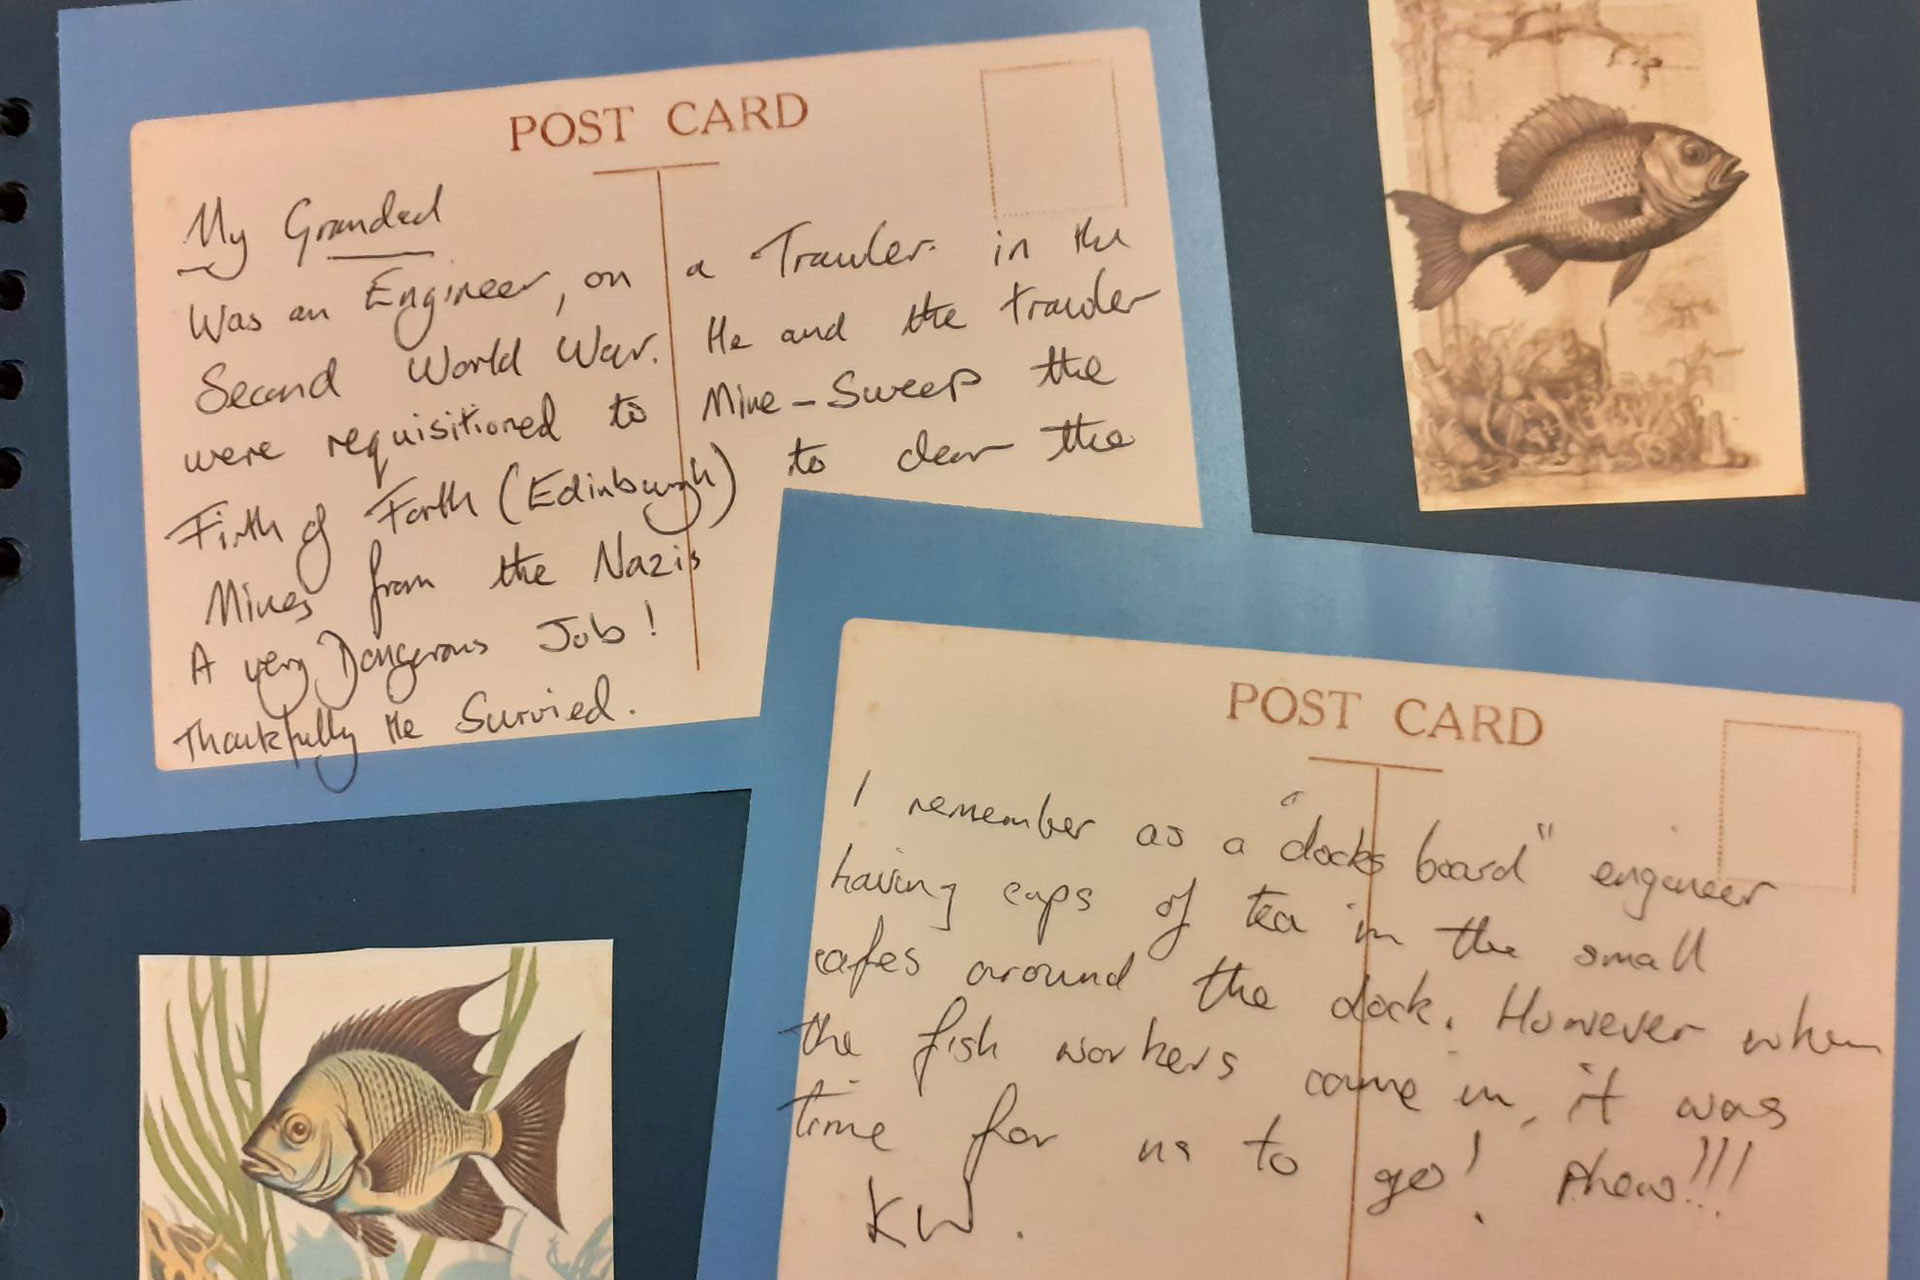 POST CARD
My Grandad
Was an Engineer, on a Trawler. in the
Second World War. He and the trawler
were requisitioned to Mine-Sweep the
Firth of Forth (Edinburgh) to clear the
Mines from the Nazis
A very Dangerous Job!
Thankfully He Survied.
POST CARD
I remember as a "docks board" engineer
having cups of tea in the small
cafes around the dock. However when
the fish workers came in, it was
time for us to go! Phew!!!
KW.